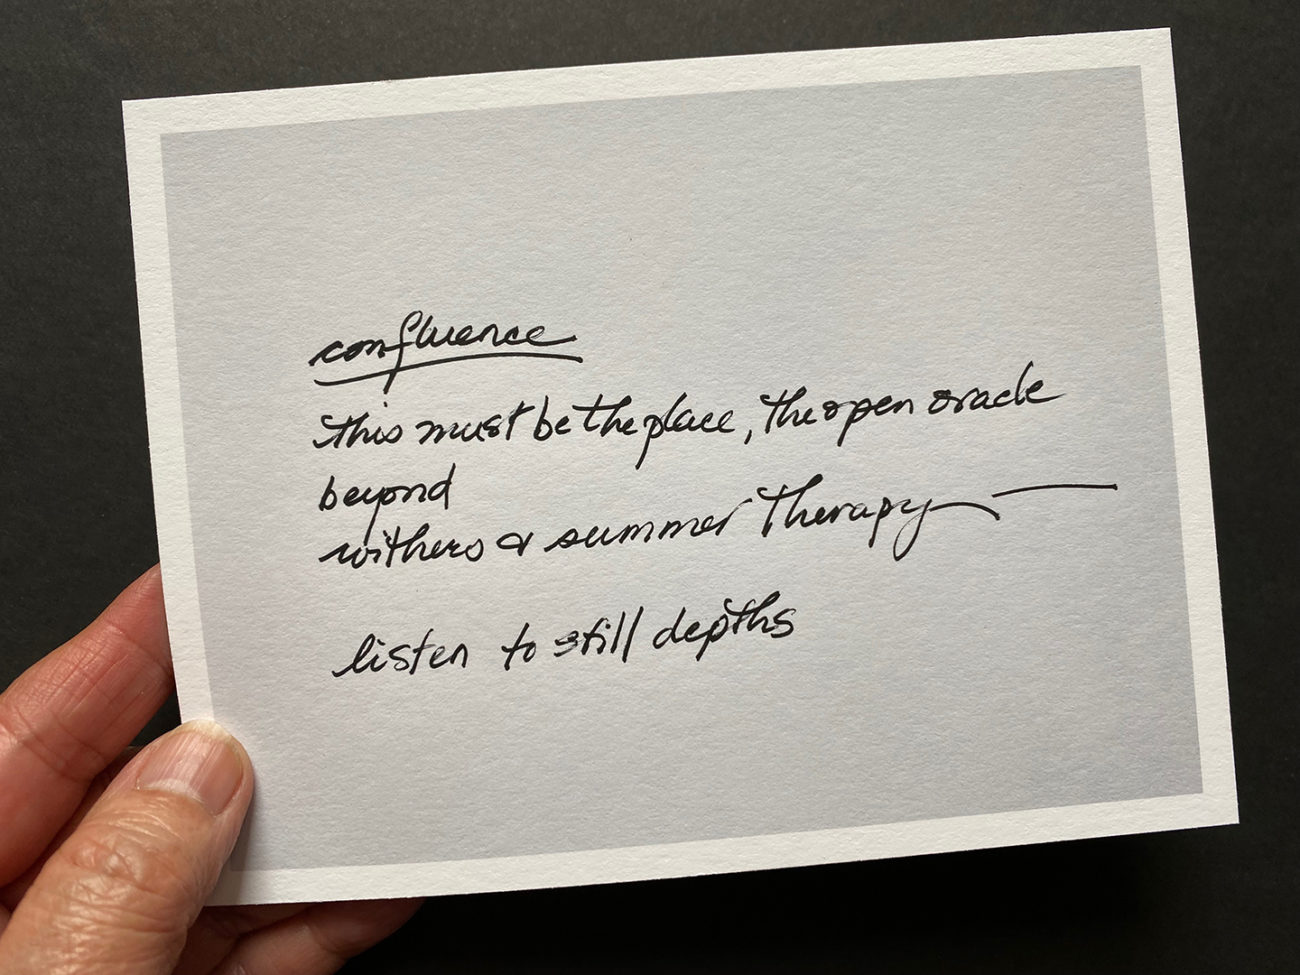 confluence
this must be the place, the open oracle
beyond
withers & summer therapy —
listen to still depths